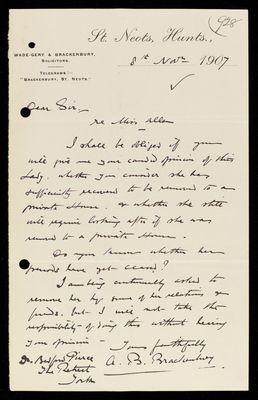 928
St. Neots, Hunts.,
WADE-GERY & BRACKENBURY,
SOLICITORS.
TELEGRAMS:-
"BRACKENBURY, ST. NEOTS."
8th Novr 1907
Dear Sir,
re Miss Allen
I shall be obliged if you
will give me your candid opinion of this
Lady. whether you consider she has
sufficiently recovered to be removed to a
private House. or whether she still
will require looking after if she was
removed to a private House.
Do you know whether her
periods have yet ceased?
I am being continually asked to
remove her by some of her relations &
friends. but I will not take the
responsibility of doing this without having
your opinion -
Yours faithfully
A. B. Brackenbury
Dr. Bedford Pierce
The Retreat
York